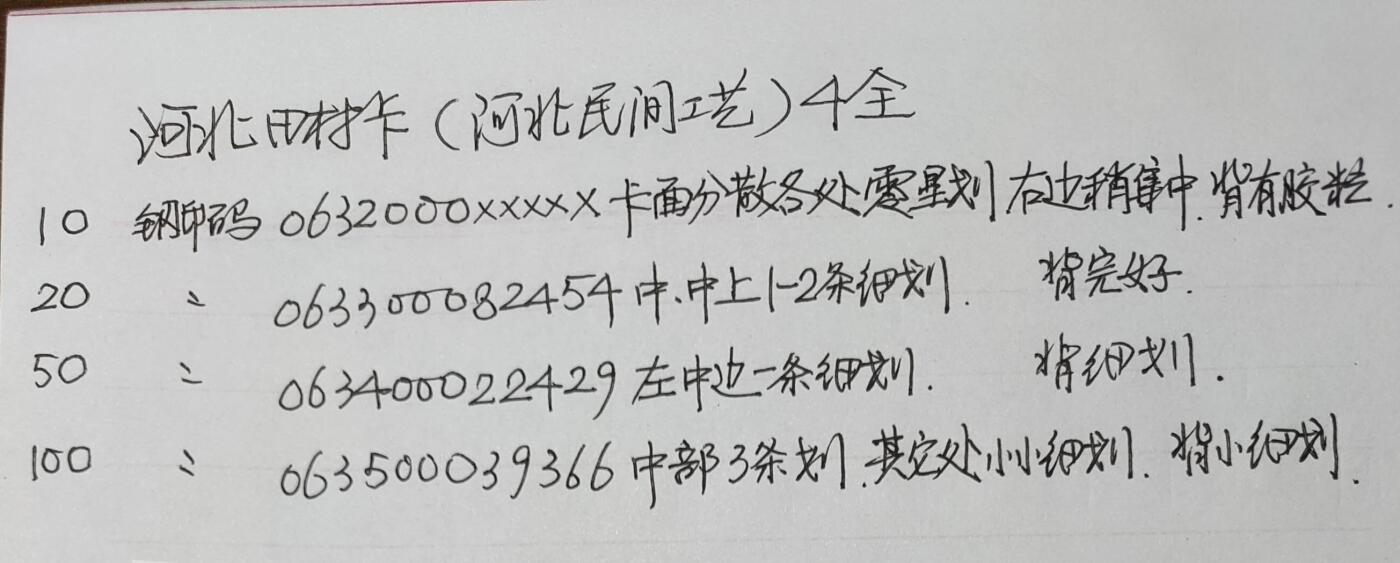 河北田村卡(河北民间工艺)4全
10 钢印码 0632000xxxxx 卡面分散各处零星划 右边稍集中.背有胶粒.
20 〃 063300082454 中.中上1-2条细划. 背完好.
50 〃 063400022429 左中边一条细划. 背细划.
100 〃 063500039366 中部3条划.其它处小小细划. 背小细划.